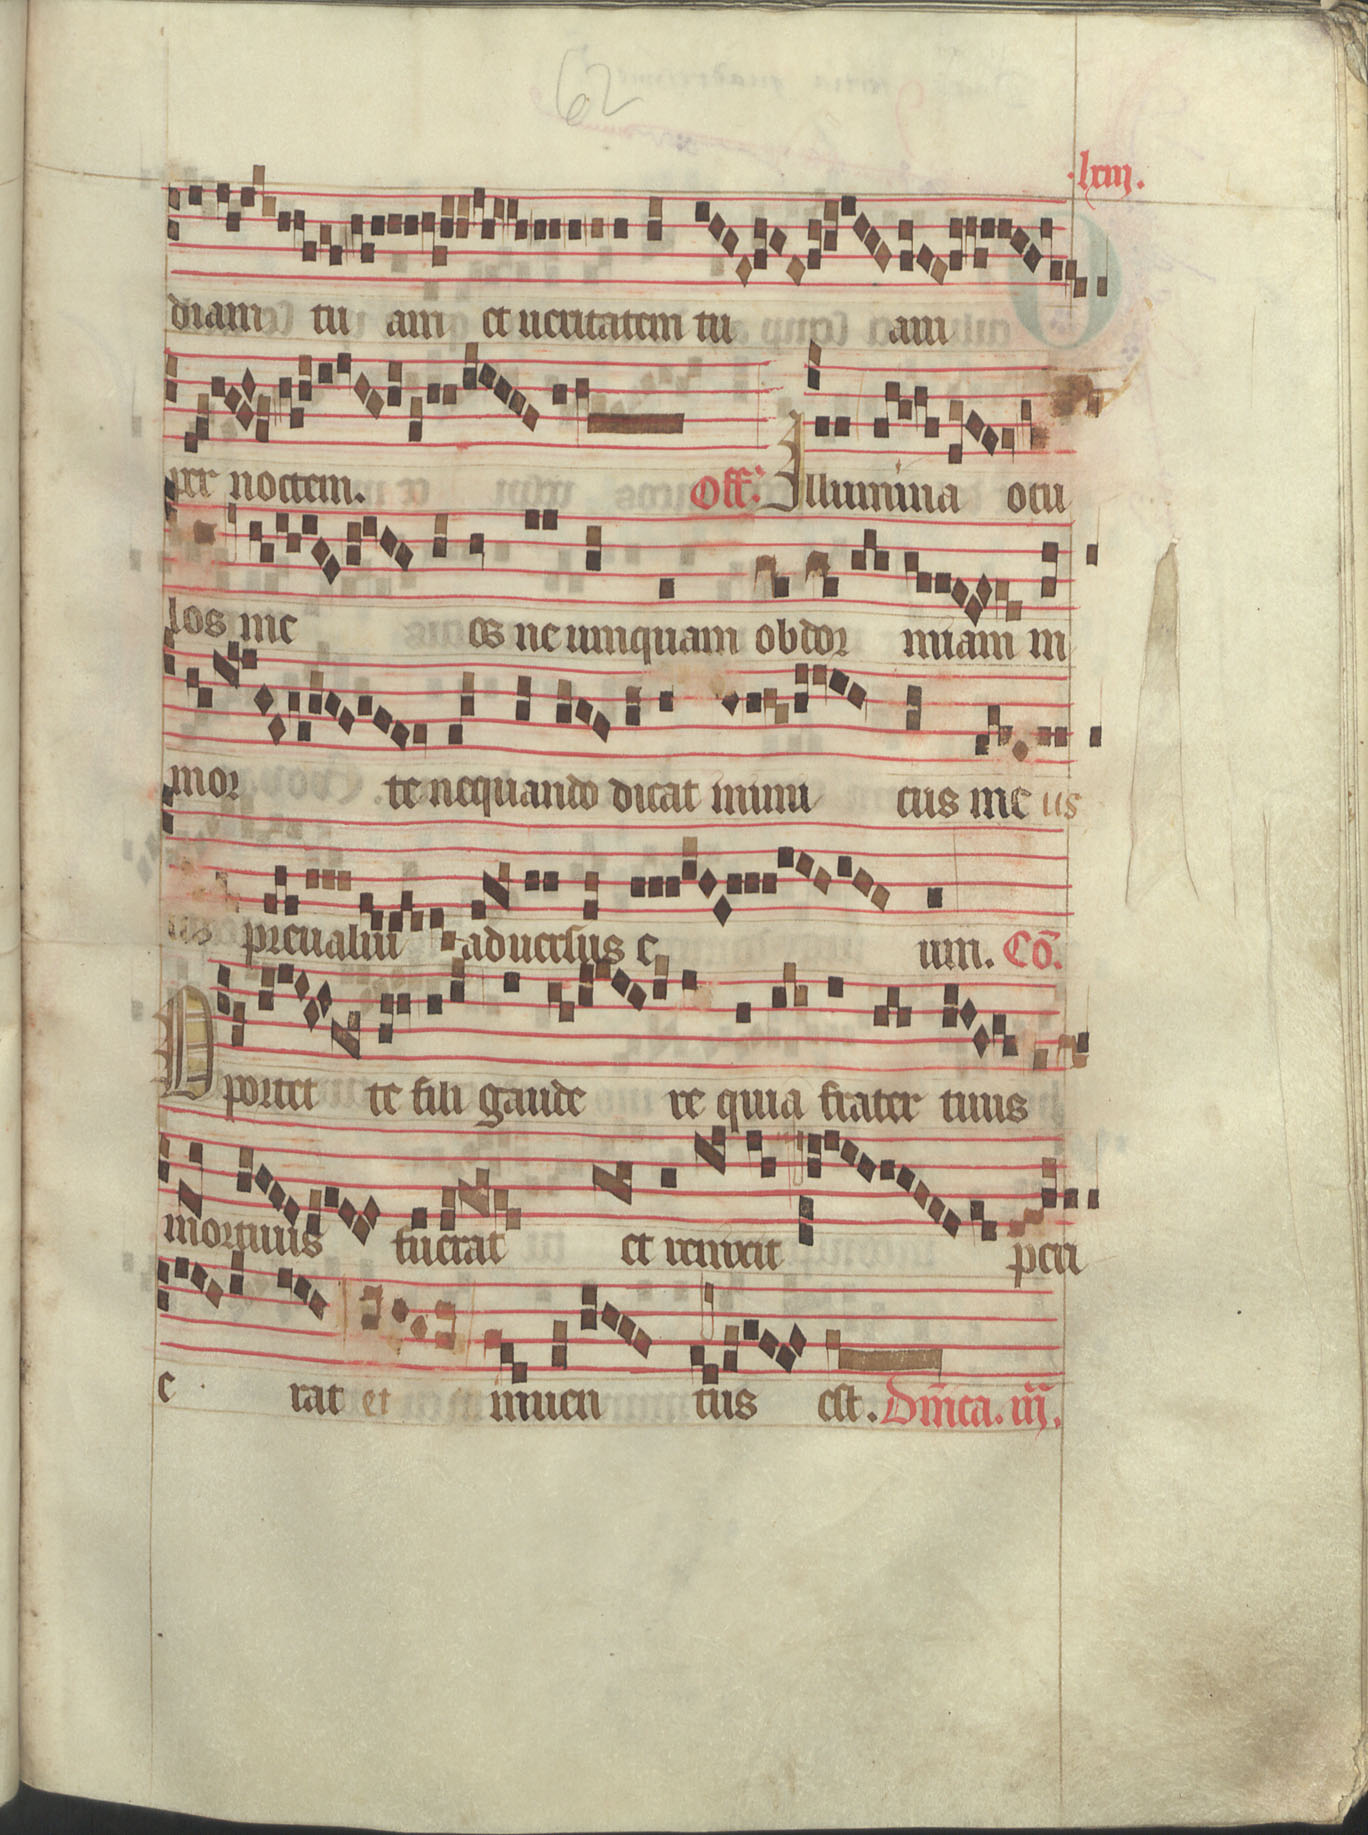 62
·lxiij.
diam tu am et ueritatem tu am
per noctem. Off. Illumina ocu
los me os ne umquam obdor miam in
mor te nequando dicat inimi cus me us
us preualui aduersus e um. Cō.
Oportet te fili gaude re quia frater tuus
mortuus fuerat et reuixit peri
e rat et inuen tus est. Dn̄ica. iij.